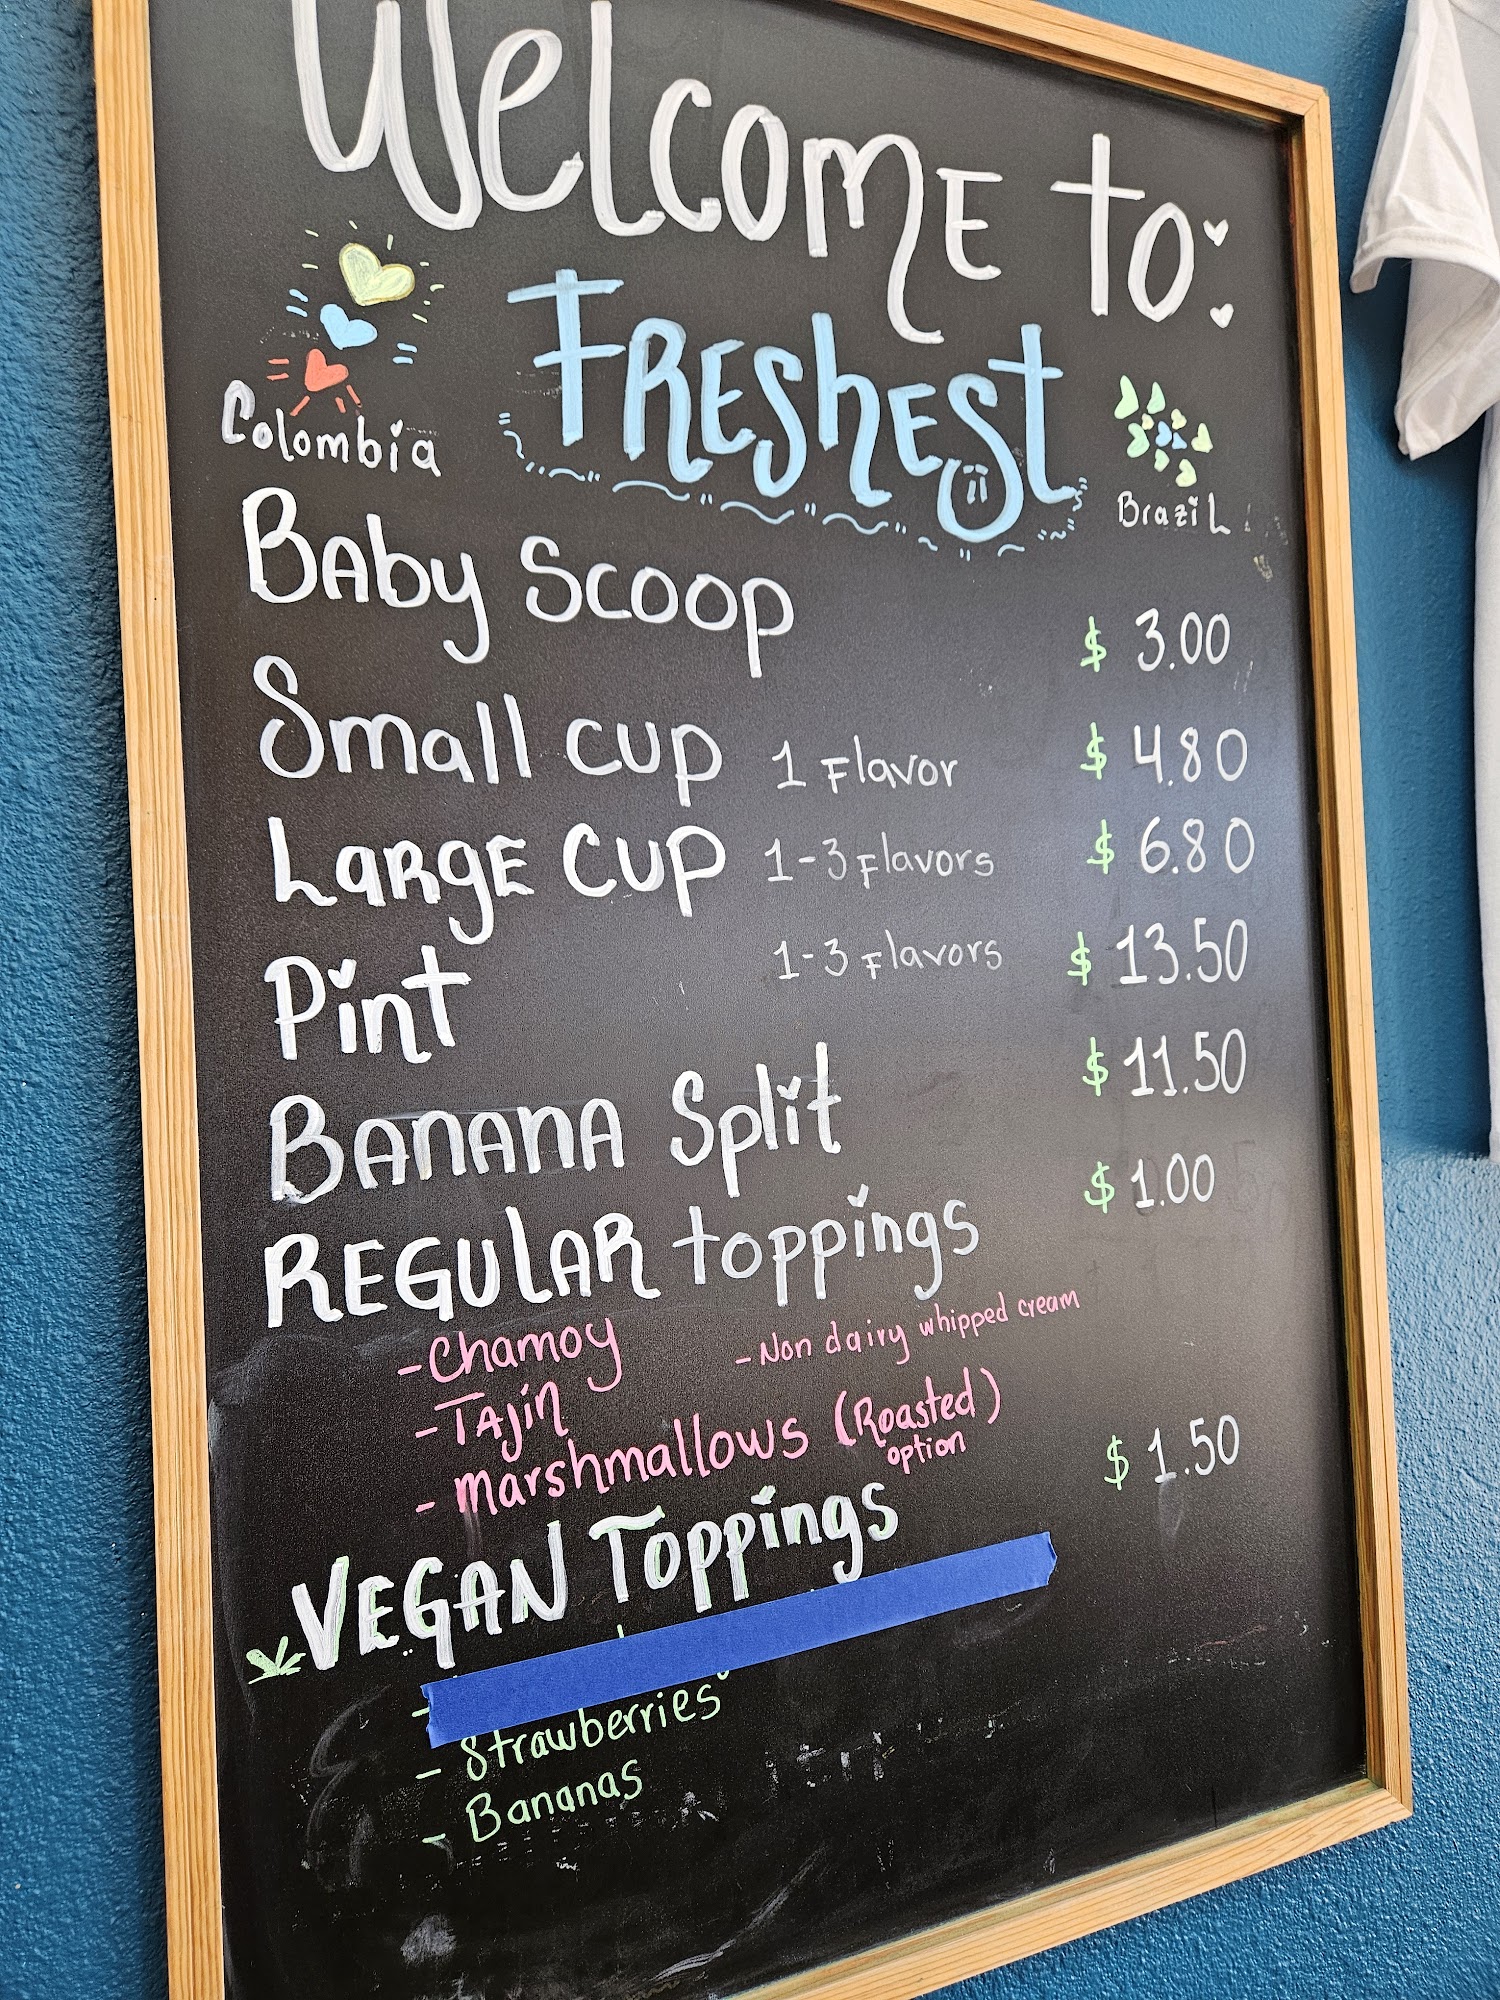 Welcome to:
Freshest
Colombia
Brazil
Baby Scoop $ 3.00
Small cup 1 Flavor $ 4.80
Large Cup 1-3 Flavors $ 6.80
Pint 1-3 Flavors $ 13.50
Banana Split $ 11.50
Regular toppings $ 1.00
- Chamoy - Non dairy whipped cream
- Tajín
- Marshmallows (Roasted option)
Vegan Toppings $ 1.50
- Strawberries
- Bananas